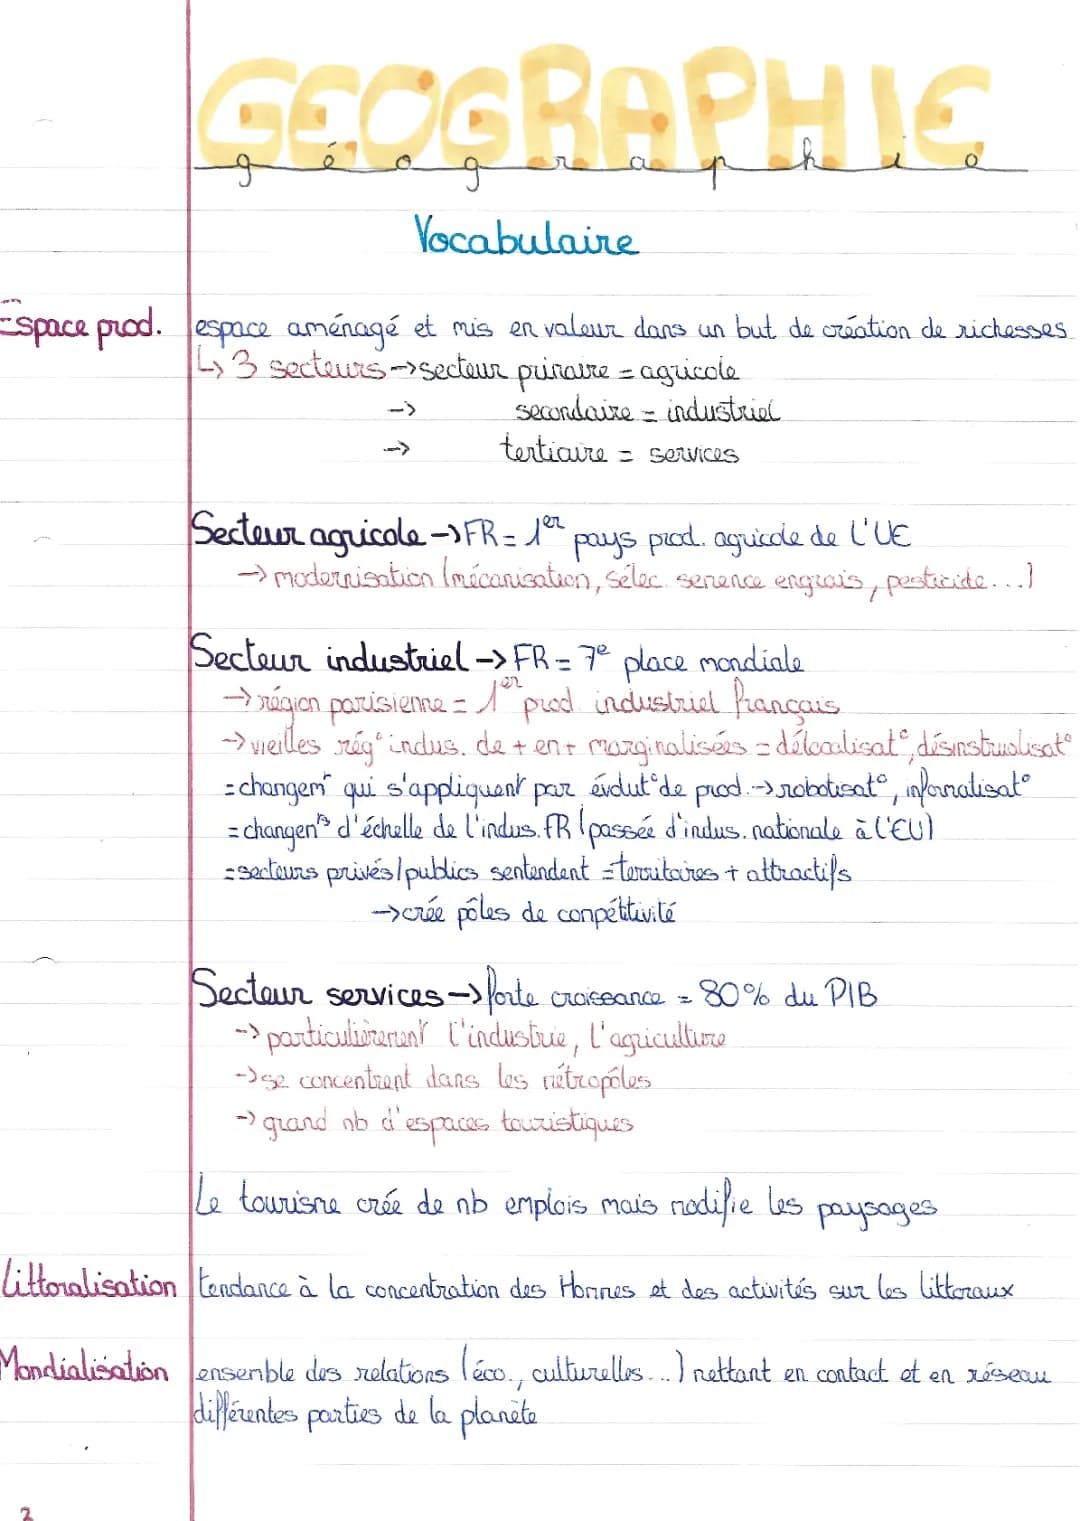 GEOGRAPHIE
géographie
Vocabulaire
Espace prod. espace aménagé et mis en valeur dans un but de création de richesses
↳ 3 secteurs -> secteur primaire = agricole
-> secondaire = industriel
-> tertiaire = services
Secteur agricole -> FR = 1er pays prod. agricole de l'UE
-> modernisation (mécanisation, sélec. semence engrais, pesticide...)
Secteur industriel -> FR = 7e place mondiale
-> région parisienne = 1er prod. industriel français
-> vieilles rég° indus. de + en + marginalisées = délocalisat°, désinstrualisat°
= changemt qui s'appliquent par évolut° de prod. -> robotisat°, informalisat°
= changemts d'échelle de l'indus. FR (passée d'indus. nationale à l'EU)
= secteurs privés/publics sentendent = territoires + attractifs
-> crée pôles de compétitivité
Secteur services -> forte croissance = 80% du PIB
-> particulièrement l'industrie, l'agriculture
-> se concentrent dans les métropôles
-> grand nb d'espaces touristiques
Le tourisme crée de nb emplois mais modifie les paysages
Littoralisation tendance à la concentration des Hommes et des activités sur les littoraux
Mondialisation ensemble des relations (éco., culturelles...) mettant en contact et en réseau
différentes parties de la planète
2